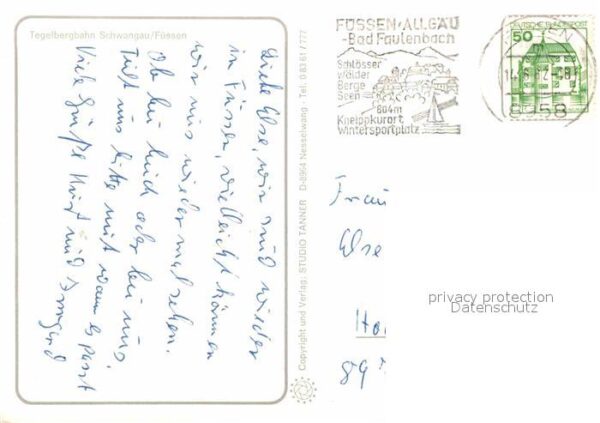 Tegelbergbahn Schwangau/Füssen
Liebe Else, wir sind wieder
in Füssen, vielleicht können
wir uns wieder mal sehen.
Ob bei Euch oder bei uns.
Teilt uns bitte mit wann es passt
Viele Grüße Kurt und Irmgard
Copyright und Verlag: STUDIO TANNER D-8964 Nesselwang · Tel. 0 83 61 / 777
FÜSSEN·ALLGÄU
-Bad Faulenbach
Schlösser
Wälder
Berge
Seen
804m
Kneippkurort
Wintersportplatz
50
8958
Frau
Else
Ho
89
privacy protection
Datenschutz